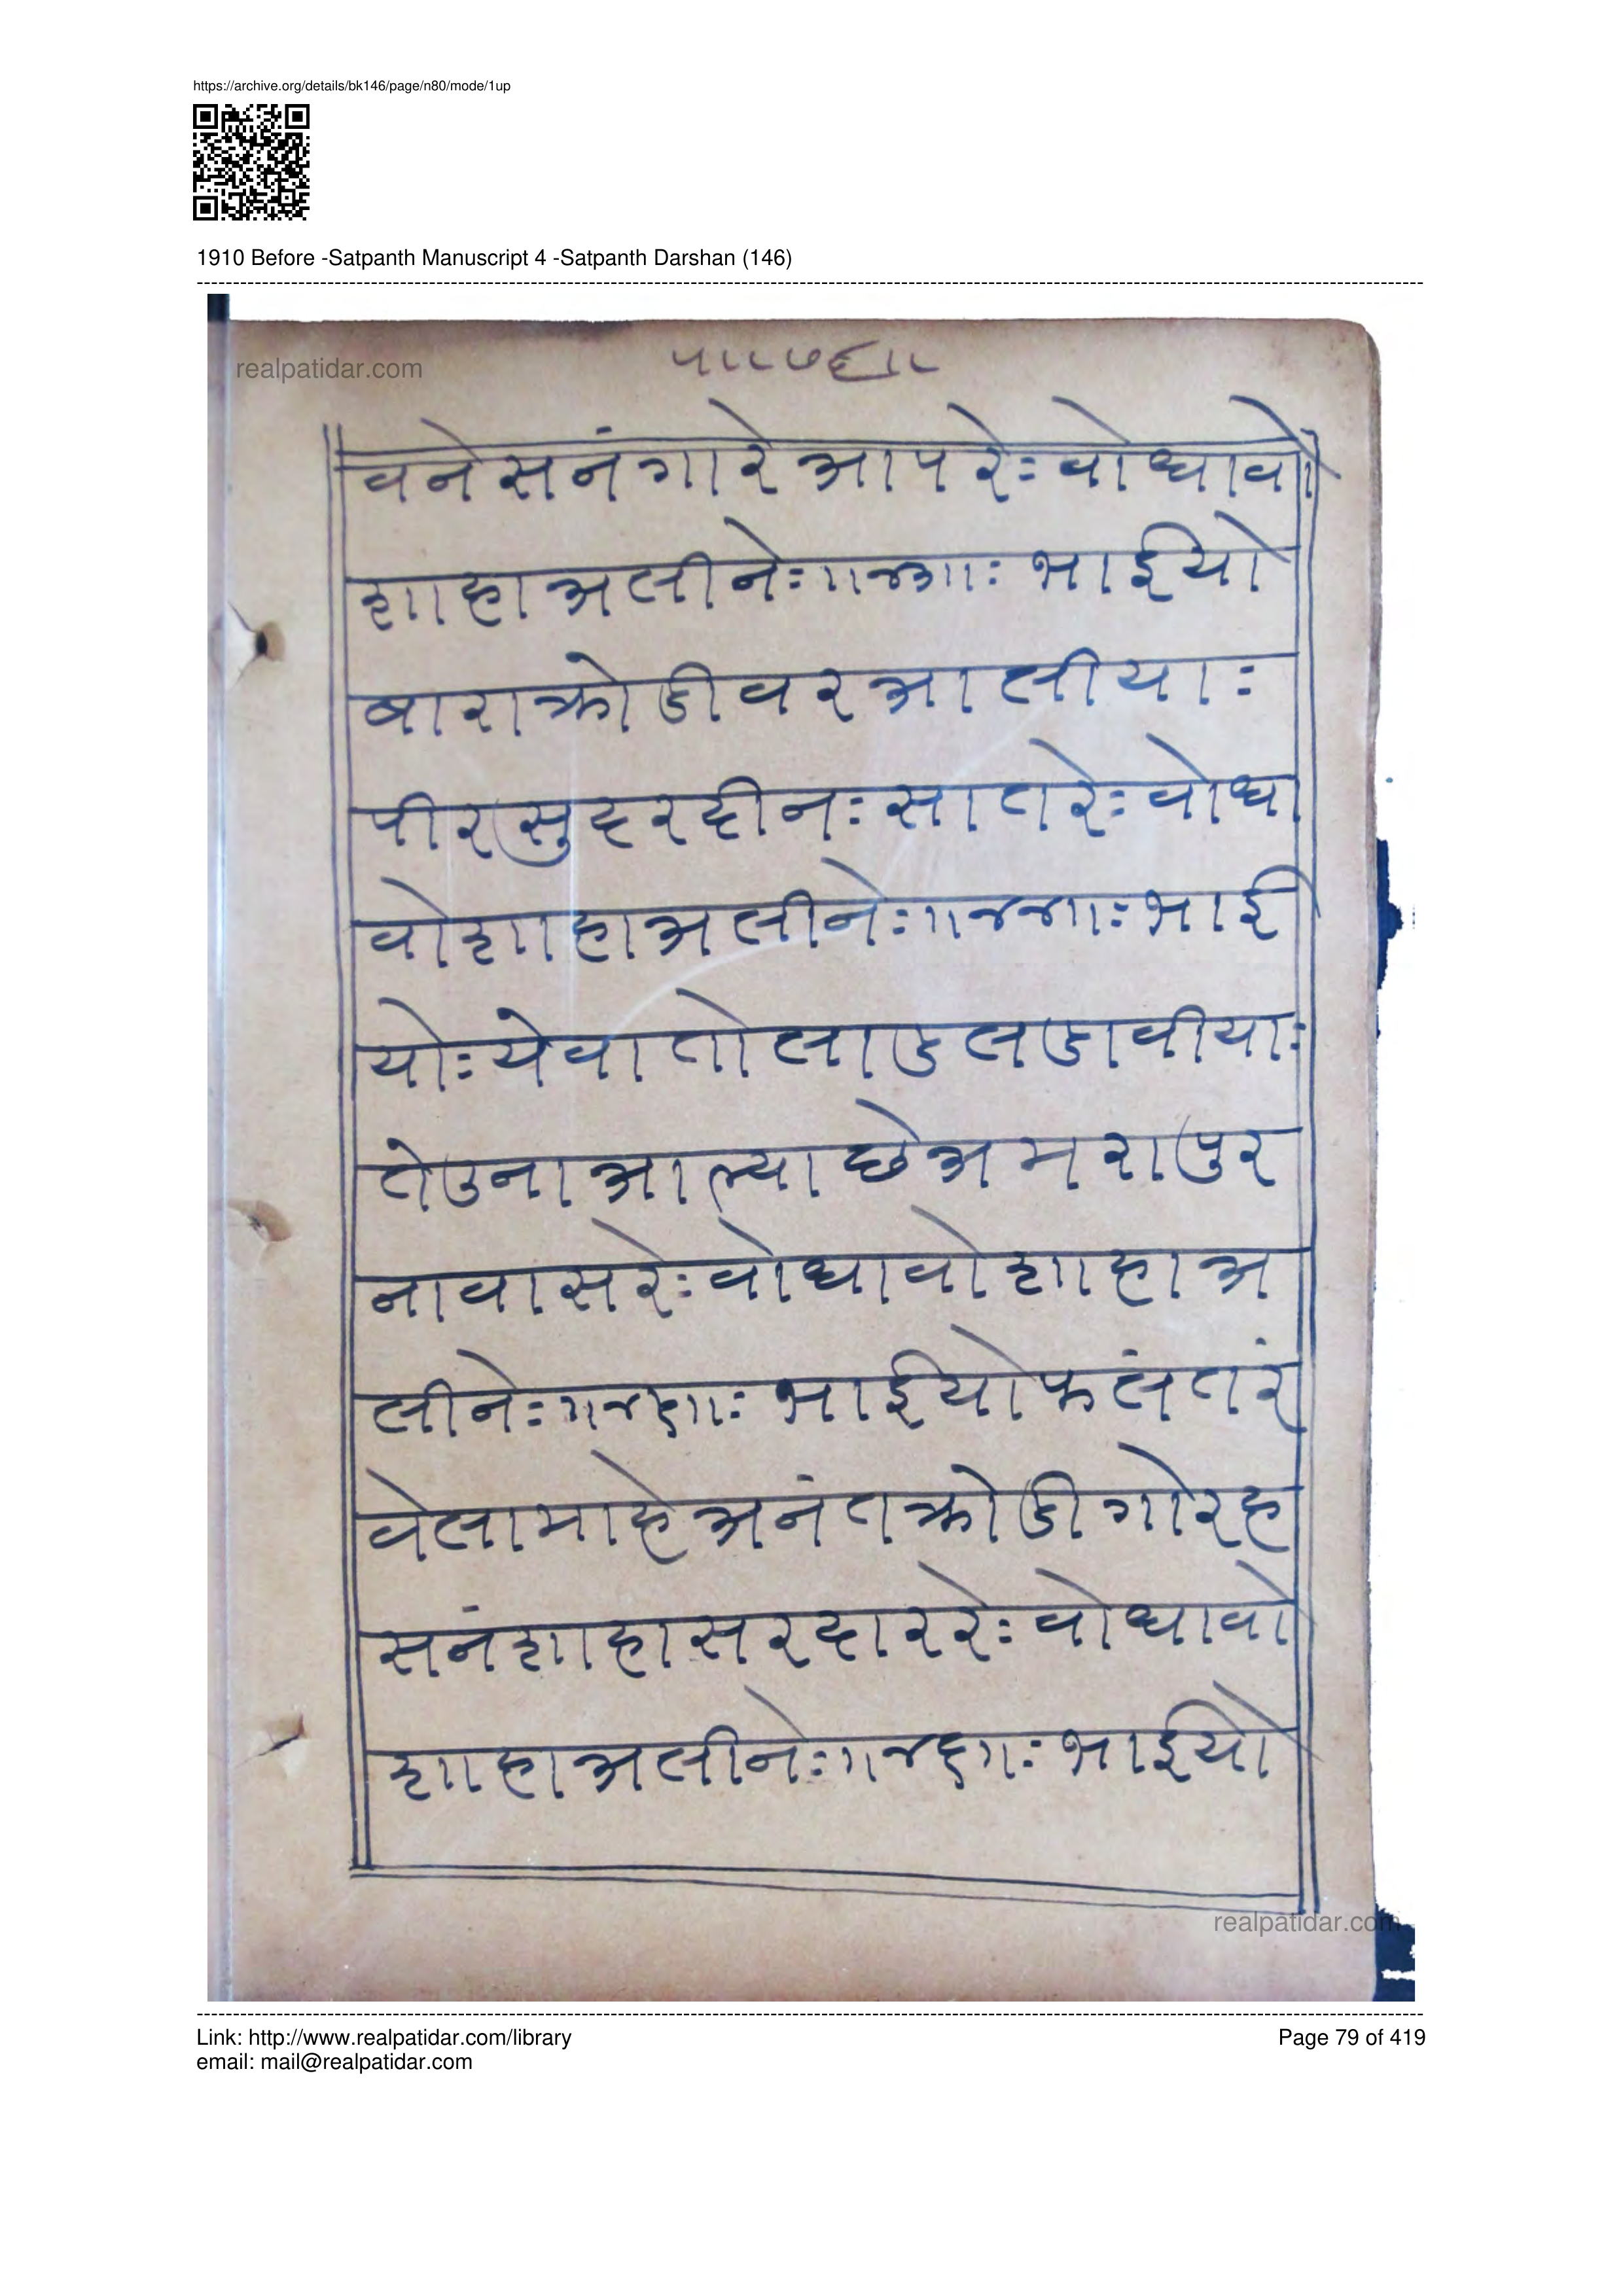 https://archive.org/details/bk146/page/n80/mode/1up
1910 Before -Satpanth Manuscript 4 -Satpanth Darshan (146)
realpatidar.com
वनेसनंगारेआपरेः वोधावो
शाहाअलीनेः ॥४३॥ः भाईयो
बाराक्रोडीवरआलीयाः
पीरसुदरदीनः सातरेः वोधा
वोशाहाअलीनेः ॥४४॥ः भाई
योः येवातोलाडलडावीयाः
तेउनाआल्याछेअमरापुर
नावासरेः वोधावोशाहाअ
लीनेः ॥४५॥ः भाईयोफलंतरं
वेलामाहेअनंतक्रोडीगोरह
सनंशाहासरदाररेः वोधावो
शाहाअलीनेः ॥४६॥ः भाईयो
realpatidar.com
Link: http://www.realpatidar.com/library
Page 79 of 419
email: mail@realpatidar.com